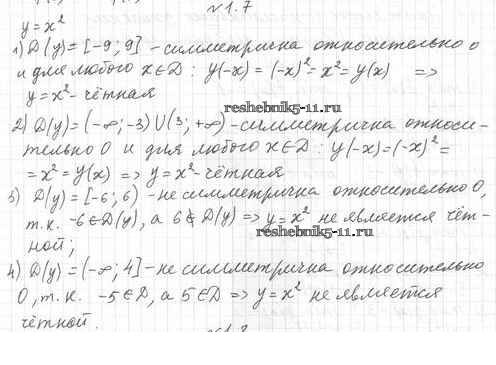 №1.7
y = x²
1) D(y) = [-9; 9] - симметрична относительно 0
и для любого x∈D: y(-x) = (-x)² = x² = y(x) ⇒
y = x² - чётная
reshebnik5-11.ru
2) D(y) = (-∞; -3) ∪ (3; +∞) - симметрична относи-
тельно 0 и для любого x∈D: y(-x) = (-x)² =
= x² = y(x) ⇒ y = x² - чётная
3) D(y) = [-6; 6) - не симметрична относительно 0,
т.к. -6∈D(y), а 6∉D(y) ⇒ y = x² не является чёт-
reshebnik5-11.ru
ной;
4) D(y) = (-∞; 4] - не симметрична относительно
0, т.к. -5∈D, а 5∈D ⇒ y = x² не является
чётной.